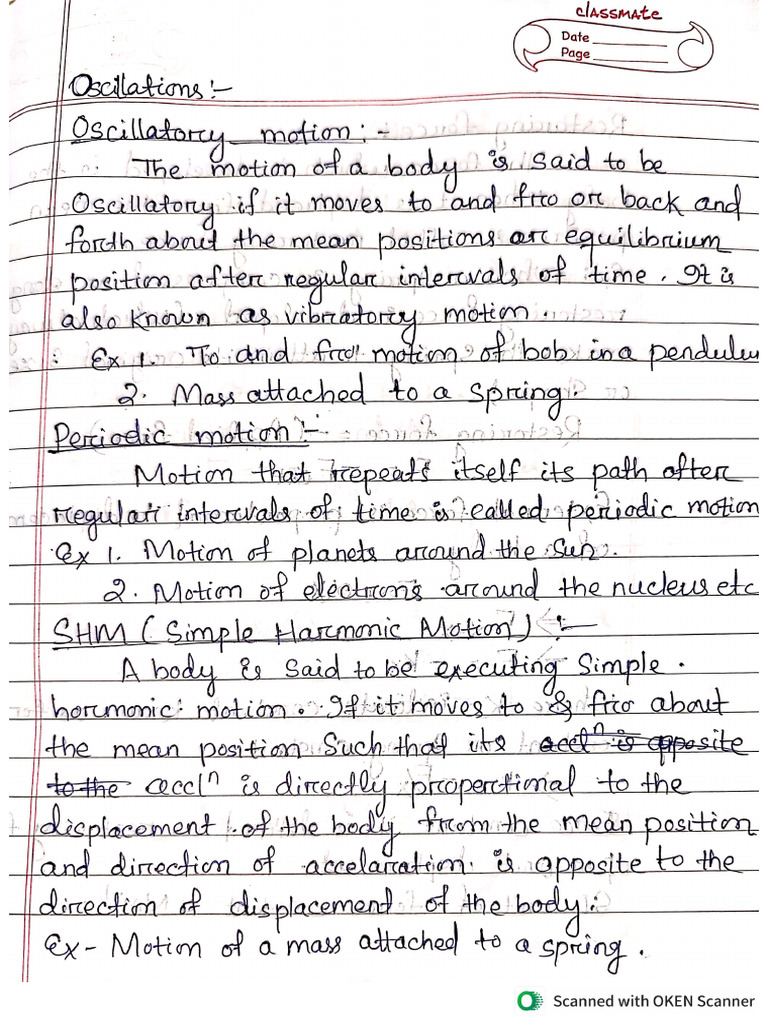 classmate
Date
Page
Oscillations :-
Oscillatory motion : -
The motion of a body is said to be
Oscillatory if it moves to and fro or back and
forth about the mean positions or equilibrium
position after regular intervals of time. It is
also known as vibratory motion.
: Ex 1. To and fro motion of bob in a pendulum
2. Mass attached to a spring.
Periodic motion :-
Motion that repeats itself its path after
regular intervals of time is called periodic motion
Ex 1. Motion of planets around the sun.
2. Motion of electrons around the nucleus etc
SHM ( Simple Harmonic Motion ) :-
A body is said to be executing Simple.
hormonic motion. If it moves to & fro about
the mean position Such that its accl^n is opposite
to the accl^n is directly propertional to the
displacement of the body from the mean position
and direction of accelarration is opposite to the
direction of displacement of the body.
Ex - Motion of a mass attached to a spring.
Scanned with OKEN Scanner